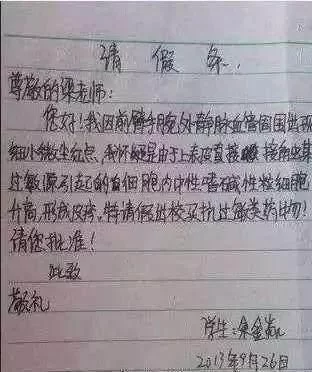 请 假 条.
尊敬的梁老师:
您好!我因前臂手腕外静脉血管周围出现
细小微尘红点,我怀疑是由于上表皮直接接触某
过敏源引起的白细胞内中性嗜碱性粒细胞
升高,形成皮疹,特请假出校买抗过敏类药物!
请您批准!
此致
敬礼
学生:
2013年9月26日